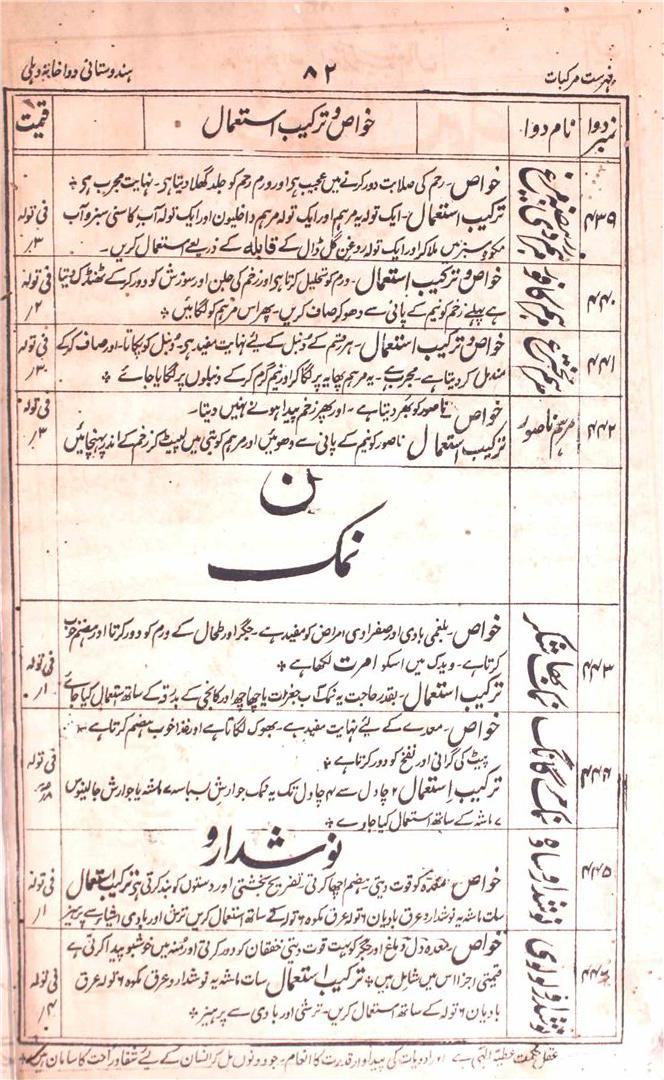 فہرست مرکبات ۸۲ ہندوستانی دواخانۂ دہلی
نمبر دوا نام دوا خواص و ترکیب استعمال قیمت
۴۳۹
خواص۔ رحم کی صلابت دور کرنے میں عجیب ہی اور ورم رحم کو جلد گھلا دیتا ہی۔ نہایت مجرب ہی
ترکیب استعمال۔ ایک تولہ یہ مرہم اور ایک تولہ مرہم داخلیون اور ایک تولہ آب کاسنی سبز و آب
مکوہ سبز میں ملا کر اور ایک تولہ روغن گل ڈال کے قابلہ کے ذریعے استعمال کریں۔
فی تولہ ۳؍
۴۴۰ مرہم کافور
خواص و ترکیب استعمال۔ ورم کو تحلیل کرتا ہی اور زخم کی جلن اور سوزش کو دور کرکے ٹھنڈک دیتا
ہے پہلے زخم کو نیم کے پانی سے دھو کر صاف کریں۔ پھر اس مرہم کو لگائیں
فی تولہ ۲؍
۴۴۱
خواص و ترکیب استعمال۔ ہر قسم کے دنبل کے لیے نہایت مفید ہی۔ دنبل کو پکاتا۔ اور صاف کرکے
مندمل کر دیتا ہے۔ مجرب ہے۔ یہ مرہم پھایہ پر لگا کر اور نیم گرم کرکے دنبلوں پر لگایا جائے
فی تولہ ۳؍
۴۴۲ مرہم ناصور
خواص۔ ناصور کو بھر دیتا ہے۔ اور پھر زخم پیدا ہونے نہیں دیتا۔
ترکیب استعمال ناصور کو نیم کے پانی سے دھوئیں اور مرہم کو بتی میں لپیٹ کر زخم کے اندر پہنچائیں
فی تولہ ۳؍
ن
نمک
۴۴۳ نمک بھاشکر
خواص۔ بلغمی بادی اور صفراوی امراض کو مفید ہے۔ جگر اور طحال کے ورم کو دور کرتا اور ہضم خوب
کرتا ہے۔ ویدک میں اسکو امرت لکھا ہے
ترکیب استعمال۔ بقدر حاجت یہ نمک آب جغرات یا چھاچھ اور کانجی کے بدرقہ کے ساتھ استعمال کیا جائے
فی تولہ ۱؍
۴۴۴ نمک مرگانگ
خواص۔ معدے کے لیے نہایت مفید ہے۔ بھوک لگاتا ہے اور غذا خوب ہضم کرتا ہے
پیٹ کی گرانی اور نفخ کو دور کرتا ہے
ترکیب استعمال ۲ چاول سے ۴ چاول تک یہ نمک جوارش بسباسہ ۷ ماشہ یا جوارش جالینوس
۷ ماشہ کے ساتھ استعمال کیا جاوے
فی تولہ
نوشدارو
۴۴۵ نوشدارو سادہ
خواص۔ معدہ کو قوت دیتی۔ ہضم اچھا کرتی۔ تفریح بخشتی اور دستوں کو بند کرتی ہی ترکیب استعمال
سات ماشہ یہ نوشدارو عرق بادیان ۶ تولہ عرق مکوہ ۶ تولہ کے ساتھ استعمال کریں ترش اور بادی اشیا سے پرہیز
فی تولہ ۱؍
۴۴۶ نوشدارو لولوی
خواص۔ معدہ دل دماغ اور جگر کو بہت قوت دیتی خفقان کو دور کرتی اور منہ میں خوشبو پیدا کرتی ہے
قیمتی اجزا اس میں شامل ہیں ترکیب استعمال سات ماشہ یہ نوشدارو عرق مکوہ ۶ تولہ عرق
بادیان ۶ تولہ کے ساتھ استعمال کریں۔ ترشی اور بادی سے پرہیز
فی تولہ ۴؍
عقل حکمت عطیۂ الٰہی ہے اور ادویات کی پیداوار قدرت کا انعام۔ جو دونوں مل کر انسان کے لیے شفا و راحت کا سامان ہیں